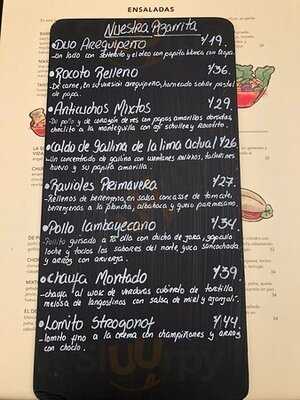 ENSALADAS
Nuestra Pizarrita
• Duo Arequipeño S/19.
• Rocoto Relleno S/36.
- De carne, en su versión arequipeña, horneado sobre pastel
de papa.
• Anticuchos Mixtos S/29.
- De pollo y de corazón de res con papas amarillas doradas,
choclito a la mantequilla con ají
• Caldo de gallina de la lima actual S/26
- Un concentrado de gallina con wantanes rellenos, tallarines
huevo y su papita amarilla.
• Ravioles Primavera S/27.
- Rellenos de berenjena, en salsa concasse de tomate,
berenjenas a la plancha, albahaca y queso parmesano.
• Pollo lambayecano S/34
- Pollito guisado a la olla con chicha de jora, zapallo
loche y todos los sabores del norte, yuca sancochada
y arroz con arverja.
• Chaufa Montado S/39
- chaufa al wok de verduras cubierto de tortilla
melosa de langostinos con salsa de miel y ajonjolí.
• Lomito Strogonof S/44.
- lomito fino a la crema con champiñones y arroz
con choclo.